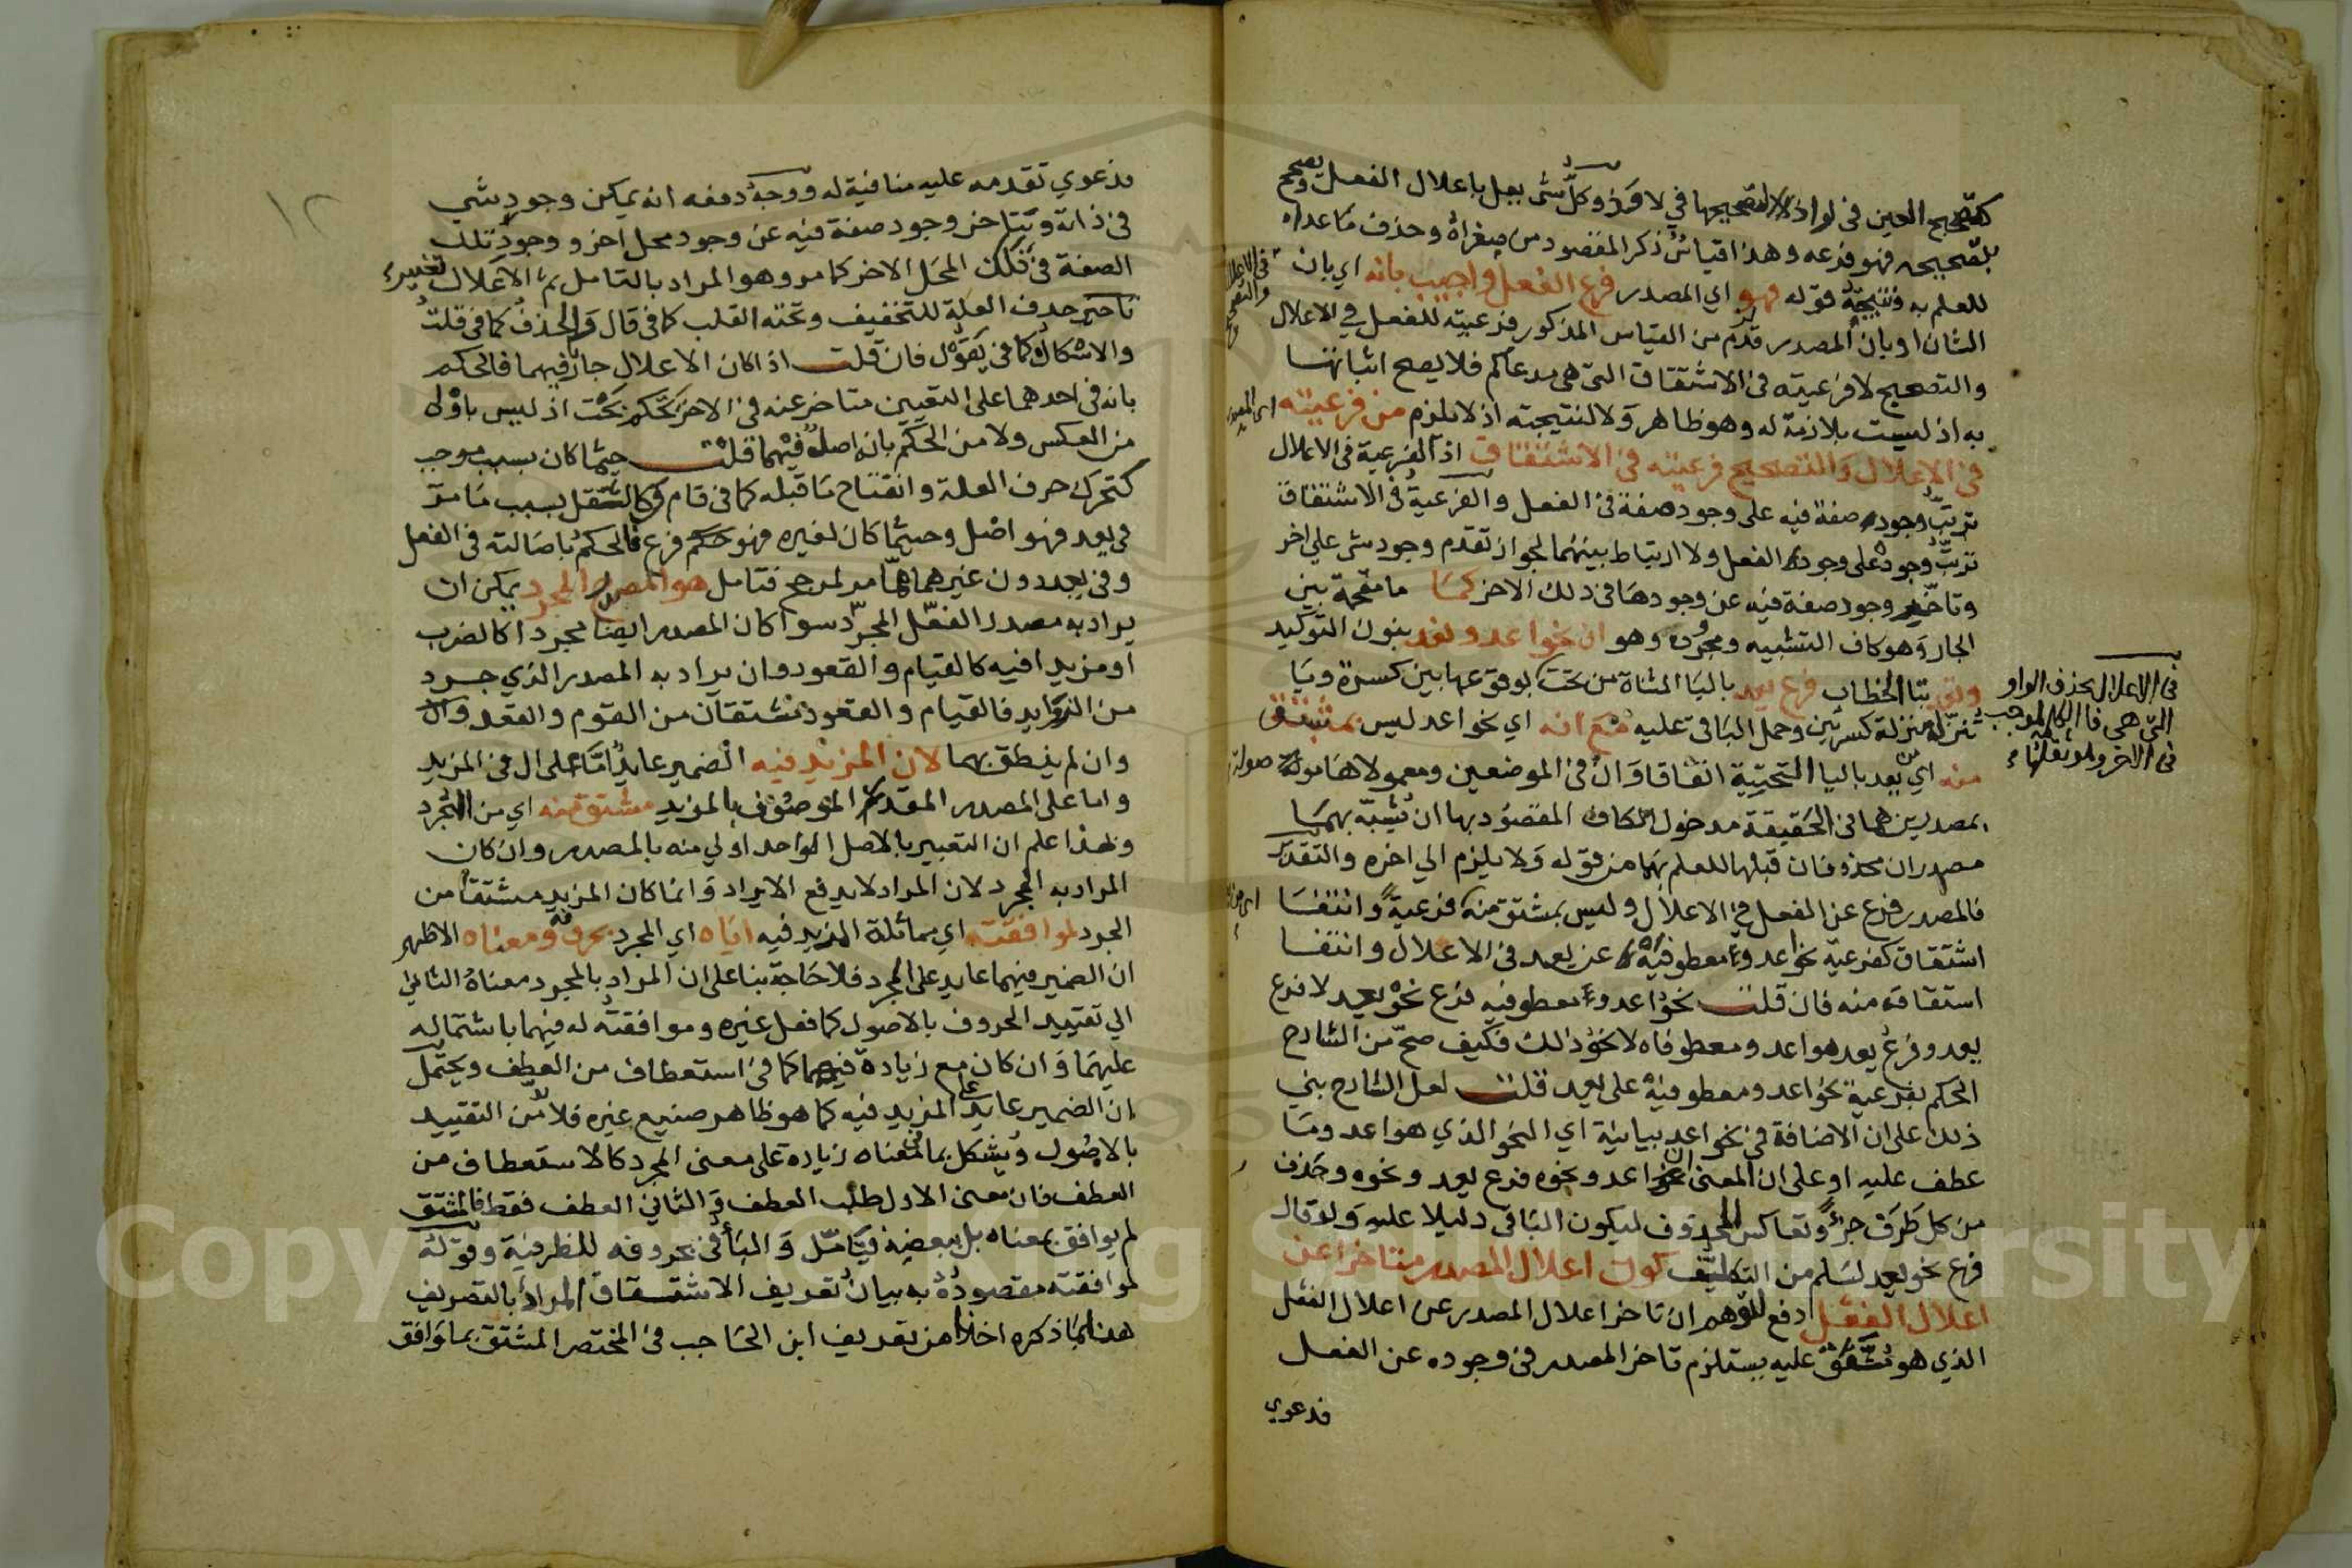 كتصحيح العين في لواذا لتصحيحها في لاوذ وكل شي يعل باعلال الفعل ويصحح
بتصحيحه فهو فرعه وهذا قياس ذكر المقصود من صغراه وحذف ما عداه
للعلم به ونتيجته قوله فهو اي المصدر فرع الفعل واجيب بانه اي بان
الشان او بان المصدر قدم من القياس المذكور فرعيته للفعل في الاعلال
والتصحيح لا فرعيته في الاشتقاق التي هي مدعاكم فلا يصح اثباتها
به اذ ليست بلازمة له وهو ظاهر ولا لنتيجته اذ لا يلزم من فرعيته
في الاعلال والتصحيح فرعيته في الاشتقاق اذ الفرعية في الاعلال
ترتب وجود صفة فيه على وجود صفة في الفعل والفرعية في الاشتقاق
ترتب وجوده على وجود الفعل ولا ارتباط بينهما لجواز تقدم وجود شي على اخر
وتاخير وجود صفة فيه عن وجودها في ذلك الاخر كما ما مقحمة بين
الجار وهو كاف التشبيه ومجروره وهو ان نحو اعد ونعد بنون التوكيد
وتق بتا الخطاب فرع يعد باليا المثناة من تحت لوقوعها بين كسرة ويا
تنزلة منزلة كسرتين وحمل الباقي عليه مع انه اي نحو اعد ليس بمشتق
منه اي من يعد باليا التحتية اتفاقا وان في الموضعين ومعمولاها مولة
بمصدرين هما في الحقيقة مدخول الكاف المقصود بها ان تشبه بهما
مصدران محذوفان قبلها للعلم بهما من قوله ولا يلزم الى اخره والتقدير
فالمصدر فرع عن الفعل في الاعلال وليس بمشتق منه فرعية وانتفا
اشتقاق كفرعية نحو اعد ومعطوفيه عن يعد في الاعلال وانتفا
اشتقاقه منه فان قلت نحو اعد ومعطوفيه فرع نحو يعد لا فرع
يعد وفرع يعد هو اعد ومعطوفاه لا نحو ذلك فكيف صح من الشارح
الحكم بفرعية نحو اعد ومعطوفيه على يعد قلت لعل الشارح بنى
ذلك على ان الاضافة في نحو اعد بيانية اي النحو الذي هو اعد وما
عطف عليه او على ان المعنى ان نحو اعد ونحوه فرع يعد ونحوه وحذف
من كل طرف جزء وتعاكس المحذوف ليكون الباقي دليلا عليه ولو قال
فرع نحو يعد لسلم من التكليف كون اعلال المصدر متاخرا عن
اعلال الفعل دفع لتوهم ان تاخر اعلال المصدر عن اعلال الفعل
الذي هو متفق عليه يستلزم تاخر المصدر في وجوده عن الفعل
فدعوي
في الاعلال والتصحيح
في الاعلال بحذف الواو
التي هي فا الكلمة لموجب
في الاخر
١٢
فدعوي تقدمه عليه منافية له ووجه دفعه انه يمكن وجود شي
في ذاته ويتاخر وجود صفة فيه عن وجود محل اخر ووجود تلك
الصفة في ذلك المحل الاخر كما مر وهو المراد بالتامل ثم الاعلال تغيير
حرف العلة للتخفيف وتحته القلب كما في قال والحذف كما في قلت
والاسكان كما في يقول فان قلت اذا كان الاعلال جار فيهما فالحكم
بانه في احدهما على التعيين متاخر عنه في الاخر تحكم بحت اذ ليس باولى
من العكس ولا من الحكم بانه اصل فيهما قلت حيثما كان بسبب موجب
كتحرك حرف العلة وانفتاح ما قبله كما في قام وكالثقل بسبب ما مر
في يعد فهو اصل وحيثما كان لغيره فهو فرع فالحكم باصالته في الفعل
وفي يعد دون غيرهما مما مر لمرجح فتامل هو المصدر المجرد يمكن ان
يراد به مصدر الفعل المجرد سوا كان المصدر ايضا مجردا كالضرب
او مزيدا فيه كالقيام والقعود وان يراد به المصدر الذي جرد
من الزوايد فالقيام والقعود مشتقان من القوم والقعد
وان لم ينطق بهما لان المزيد فيه الضمير عايد اما على ال في المزيد
واما على المصدر المقدر الموصوف بالمزيد مشتق منه اي من المجرد
وبهذا علم ان التعبير بالاصل الواحد اولي منه بالمصدر وان كان
المراد به المجرد لان المراد لا يدفع الايراد وانما كان المزيد مشتقا من
المجرد لموافقته اي مماثلة المزيد فيه اياه اي المجرد بحروفه ومعناه الاظهر
ان الضمير فيهما عايد على المجرد فلا حاجة بنا على ان المراد بالمجرد معناه الثاني
الي تقييد الحروف بالاصول كما فعل غيره وموافقته له فيهما باشتماله
عليهما وان كان مع زيادة فيهما كما في استعطاف من العطف ويحتمل
ان الضمير عايد على المزيد فيه كما هو ظاهر صنيع غيره فلا بد من التقييد
بالاصول ويشكل بما في معناه زيادة على معنى المجرد كالاستعطاف من
العطف فان معنى الاول طلب العطف والثاني العطف فقط فالمشتق
لم يوافق بمعناه بل ببعضه فيتامل والبا في بحروفه للظرفية وقوله
لموافقته مقصوده به بيان تعريف الاشتقاق المراد بالتصريف
هنا بما ذكره اخذا من تعريف ابن الحاجب في المختصر المشتق بما وافق